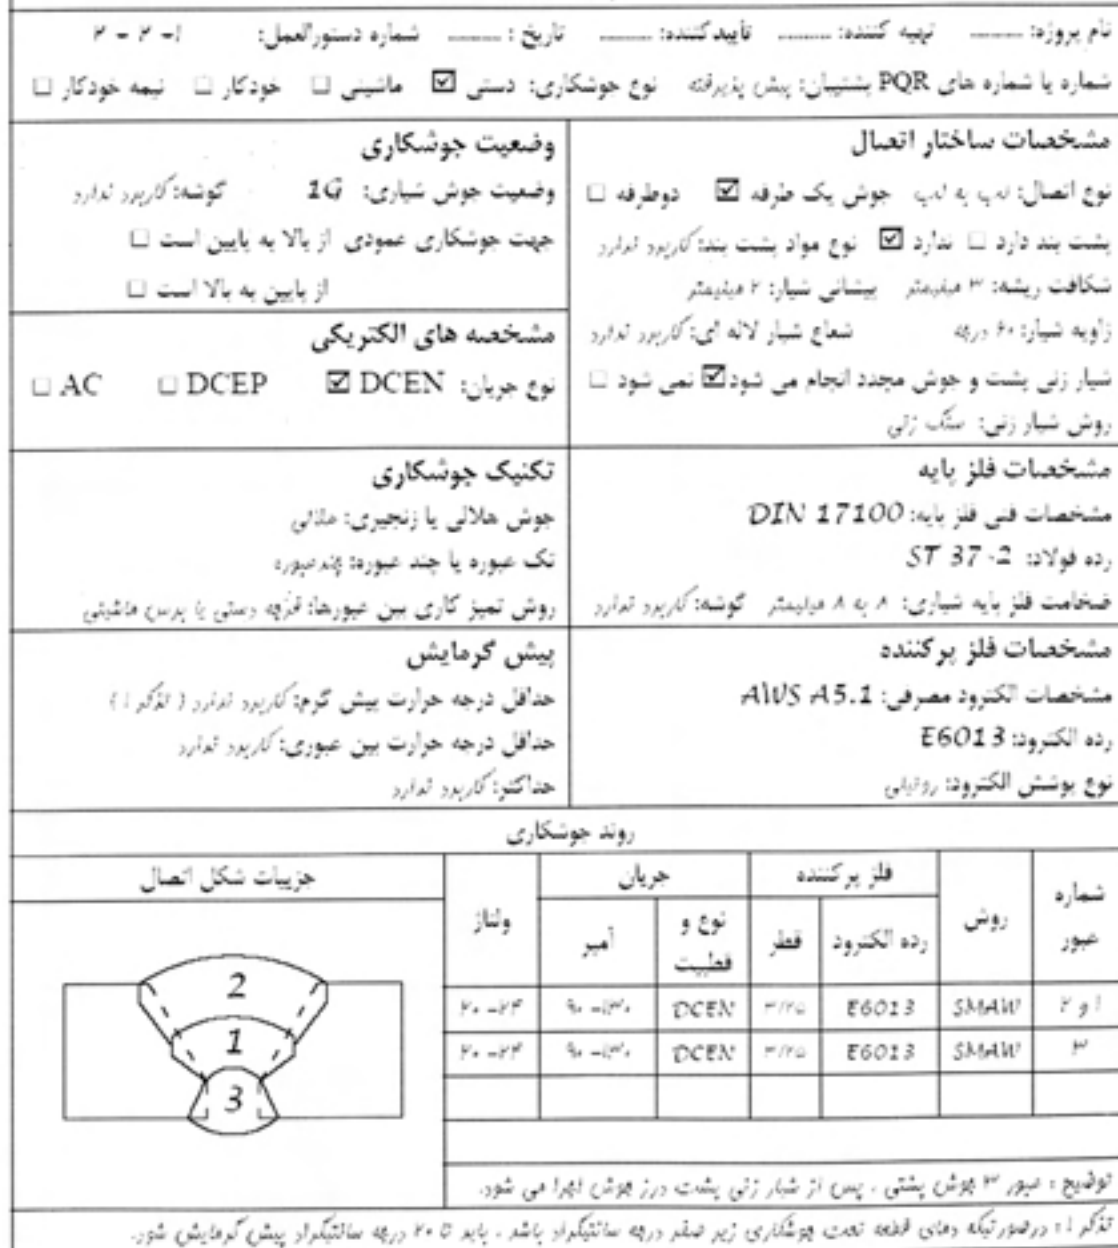 نام پروژه: ........ تهیه کننده: ........ تأییدکننده: ........ تاریخ : ........ شماره دستورالعمل: ۱- ۲ - ۲
شماره یا شماره های PQR پشتیبان: پیش پذیرفته نوع جوشکاری: دستی ☑ ماشینی □ خودکار □ نیمه خودکار □
مشخصات ساختار اتصال
نوع اتصال: لب به لب جوش یک طرفه ☑ دوطرفه □
پشت بند دارد □ ندارد ☑ نوع مواد پشت بند: کاربرد ندارد
شکافت ریشه: ۳ میلیمتر پیشانی شیار: ۲ میلیمتر
زاویه شیار: ۶۰ درجه شعاع شیار لاله ای: کاربرد ندارد
شیار زنی پشت و جوش مجدد انجام می شود ☑ نمی شود □
روش شیار زنی: سنگ زنی
وضعیت جوشکاری
وضعیت جوش شیاری: 1G گوشه: کاربرد ندارد
جهت جوشکاری عمودی از بالا به پایین است □
از پایین به بالا است □
مشخصه های الکتریکی
نوع جریان: DCEN ☑ DCEP □ AC □
مشخصات فلز پایه
مشخصات فنی فلز پایه: DIN 17100
رده فولاد: ST 37-2
ضخامت فلز پایه شیاری: ۸ به ۸ میلیمتر گوشه: کاربرد ندارد
تکنیک جوشکاری
جوش هلالی یا زنجیری: هلالی
تک عبوره یا چند عبوره: چندعبوره
روش تمیز کاری بین عبورها: فرچه دستی یا برس ماشینی
مشخصات فلز پرکننده
مشخصات الکترود مصرفی: AWS A5.1
رده الکترود: E6013
نوع پوشش الکترود: روتیلی
پیش گرمایش
حداقل درجه حرارت پیش گرم: کاربرد ندارد ( تذکر ۱ )
حداقل درجه حرارت بین عبوری: کاربرد ندارد
حداکثر: کاربرد ندارد
روند جوشکاری
شماره عبور روش فلز پرکننده جریان ولتاژ جزییات شکل اتصال
رده الکترود قطر نوع و قطبیت آمپر
۱ و ۲ SMAW E6013 ۳/۲۵ DCEN ۹۰ -۱۳۰ ۲۰ -۲۴
۳ SMAW E6013 ۳/۲۵ DCEN ۹۰ -۱۳۰ ۲۰ -۲۴
2
1
3
توضیح : عبور ۳ جوش پشتی ، پس از شیار زنی پشت درز جوش اجرا می شود.
تذکر ۱: درصورتیکه دمای قطعه تحت جوشکاری زیر صفر درجه سانتیگراد باشد ، باید تا ۲۰ درجه سانتیگراد پیش گرمایش شود.